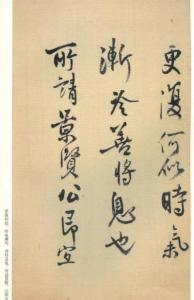 更復何似時氣
漸冷善將息也
所請景賢公昂宜